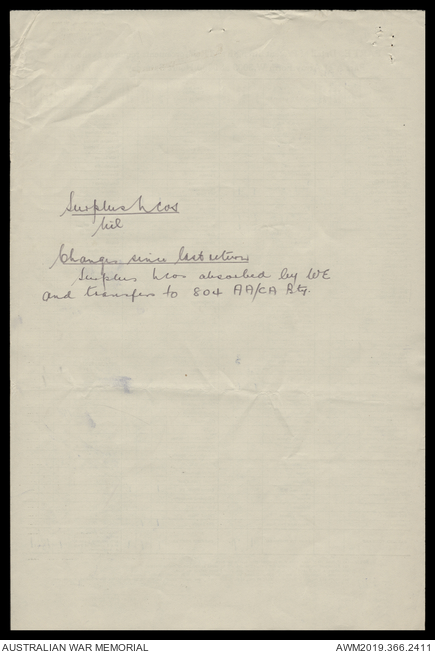 Surplus NCOs
Nil
Changes since last return
Surplus NCOs absorbed by WE
and transfers to 804 AA/CA Bty.
AUSTRALIAN WAR MEMORIAL
AWM2019.366.2411